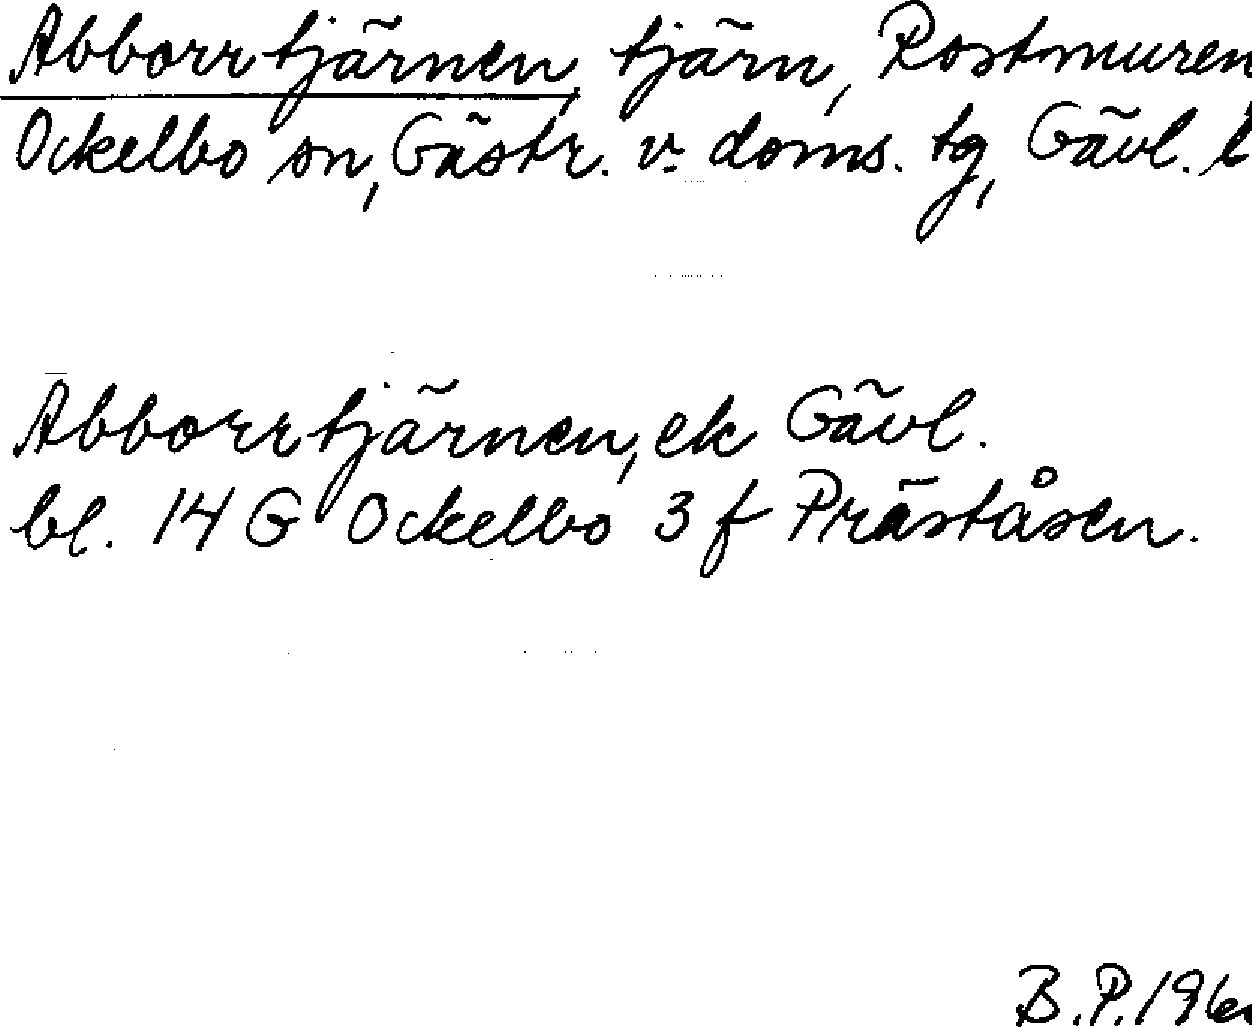 Abborrtjärnen, tjärn, Rostmuren
Ockelbo sn, Gästr. v. doms. tg, Gävl. l
Abborrtjärnen, ek Gävl.
bl. 14 G Ockelbo 3 f Präståsen.
B.P.